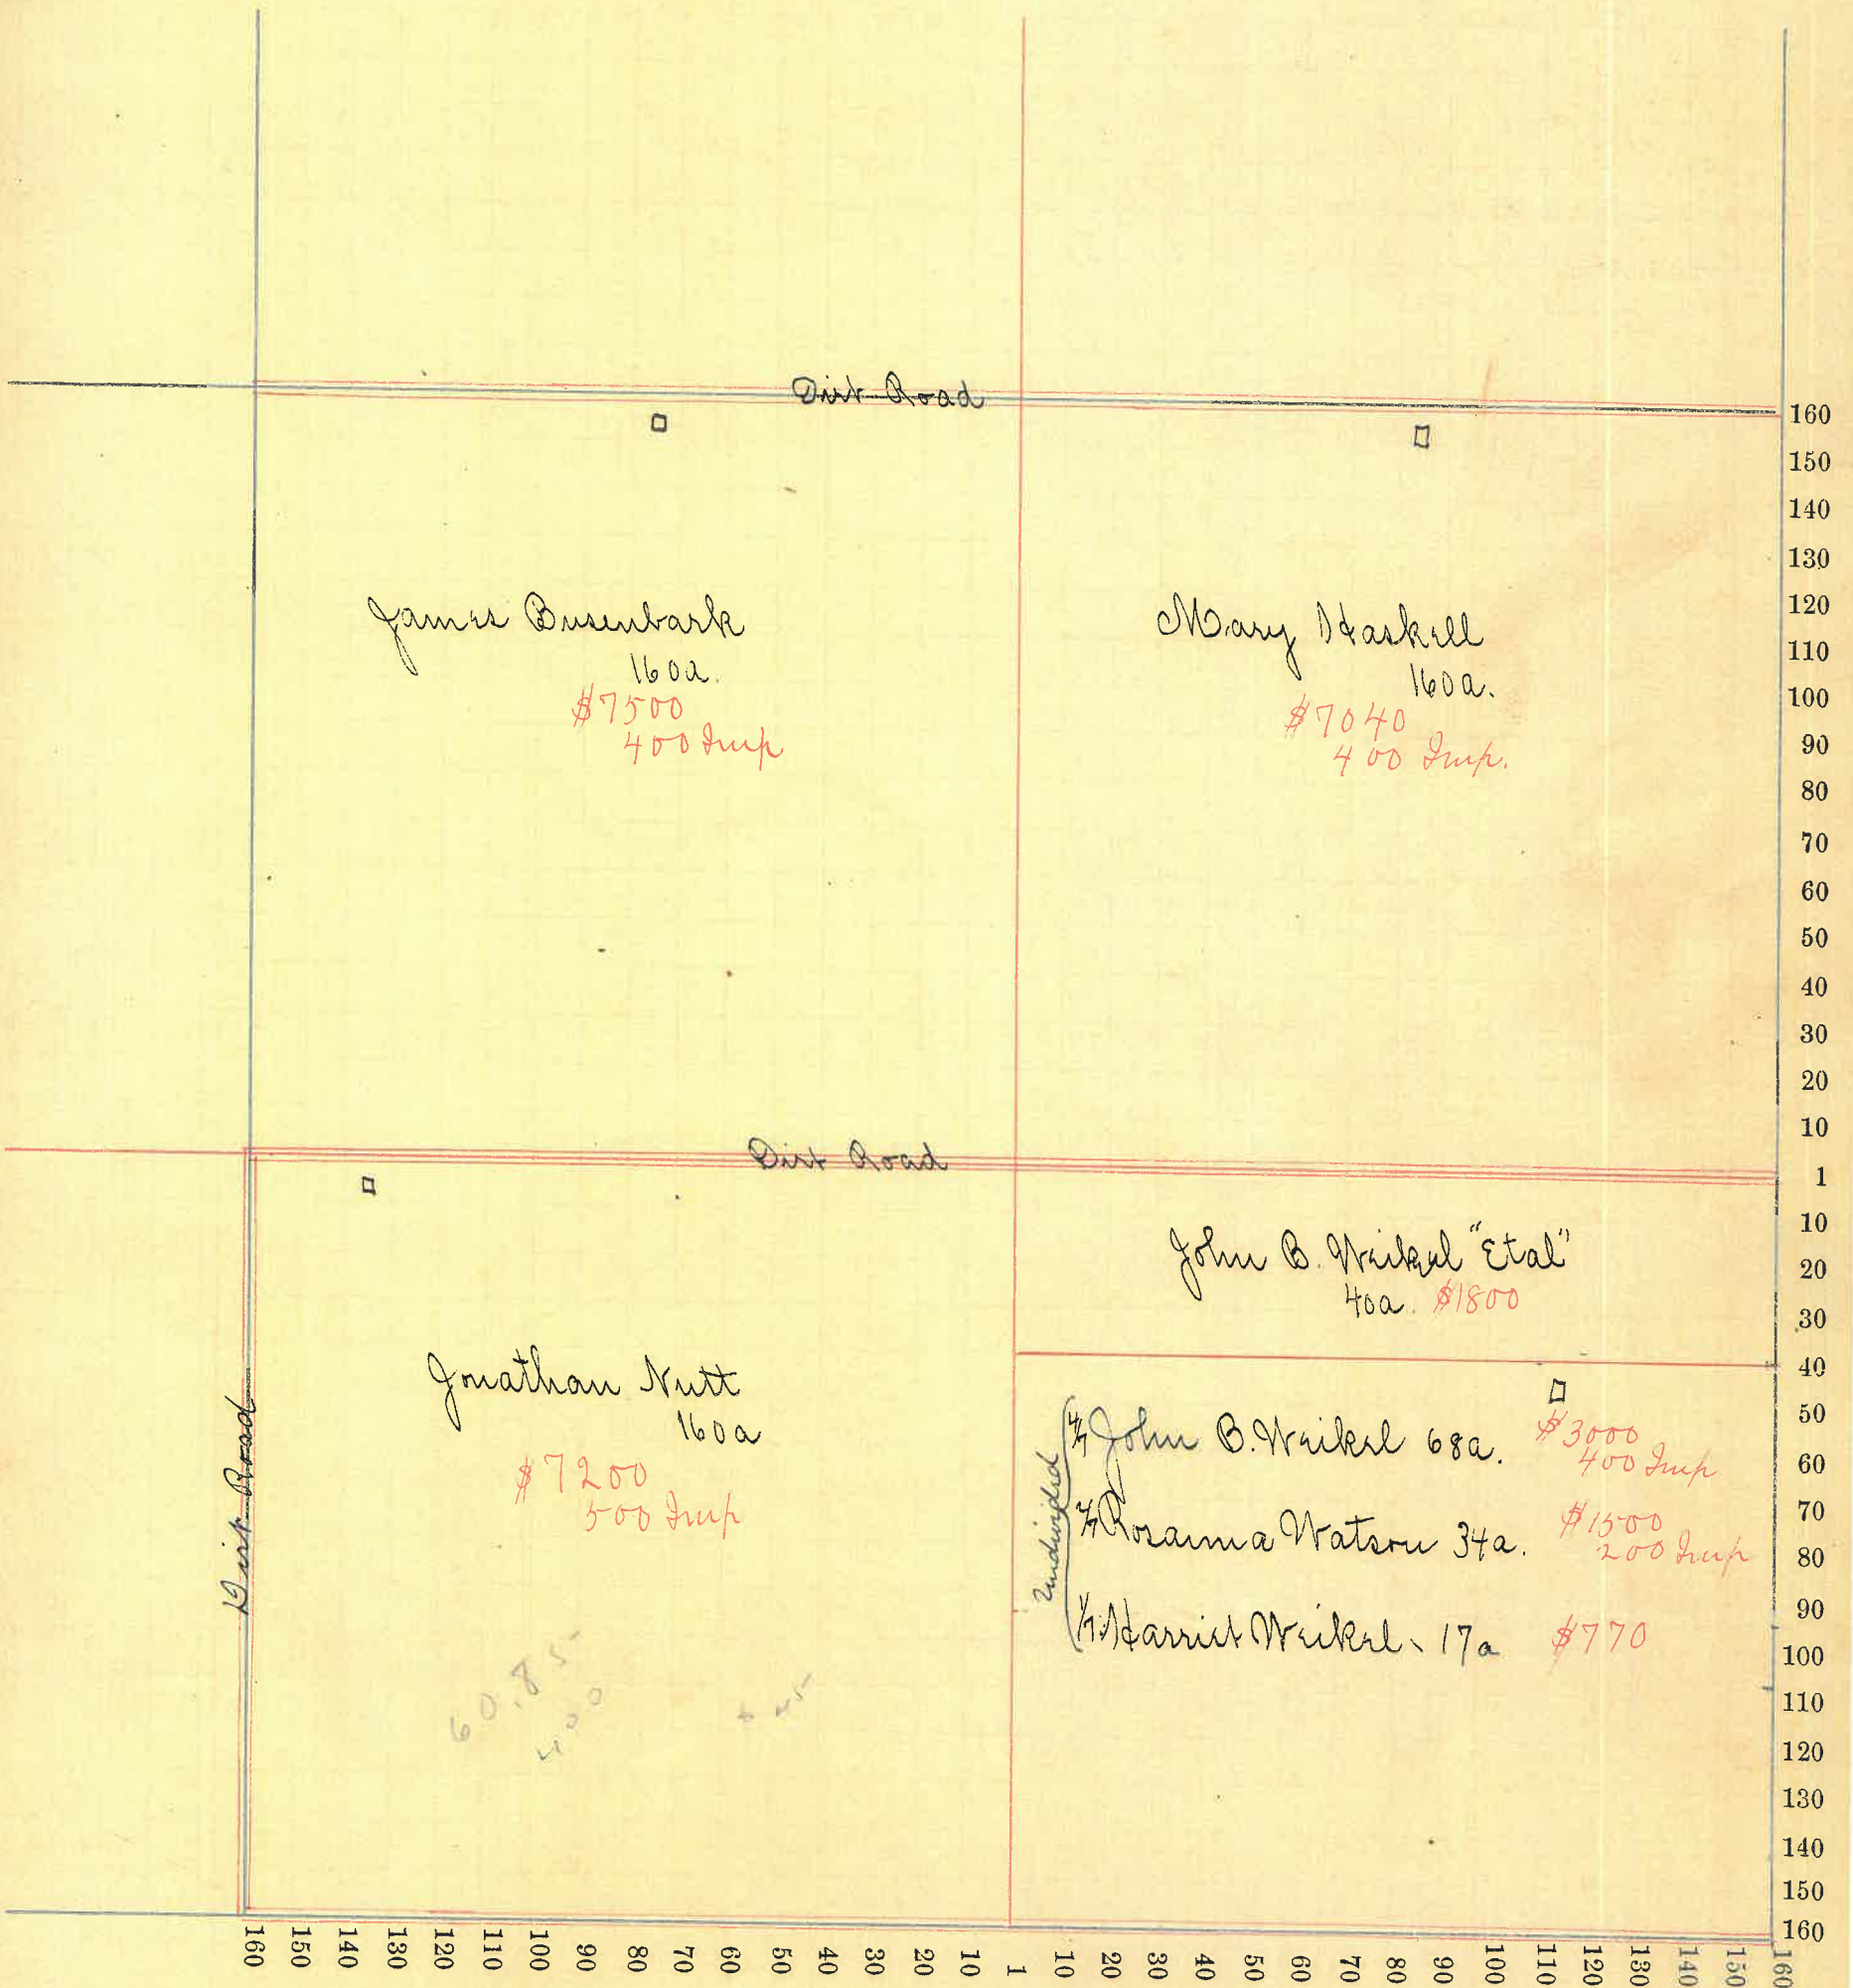 Dirt Road
James Busenbark
160a.
$7500
400 Imp
Mary Haskell
160a.
$7040
400 Imp.
Dirt Road
John B. Weikel "Etal"
40a. $1800
Jonathan Nutt
160a
$7200
500 Imp
Dirt Road
Undivided
4/7 John B. Weikel 68a. $3000
400 Imp
2/7 Rosanna Watson 34a. $1500
200 Imp
1/7 Harriet Weikel 17a $770
60.85
400
160
150
140
130
120
110
100
90
80
70
60
50
40
30
20
10
1
10
20
30
40
50
60
70
80
90
100
110
120
130
140
150
160
160 150 140 130 120 110 100 90 80 70 60 50 40 30 20 10 1 10 20 30 40 50 60 70 80 90 100 110 120 130 140 150 160